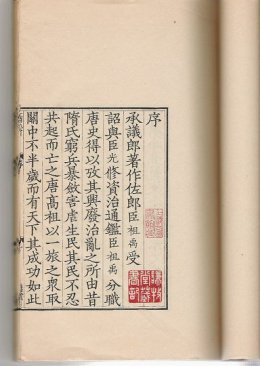 序
承議郎著作佐郎臣祖禹受
詔與臣光修資治通鑑臣祖禹分職
唐史得以攷其興廢治亂之所由昔
隋氏窮兵暴斂害虐生民其民不忍
共起而亡之唐髙祖以一旅之衆取
關中不半歲而有天下其成功如此